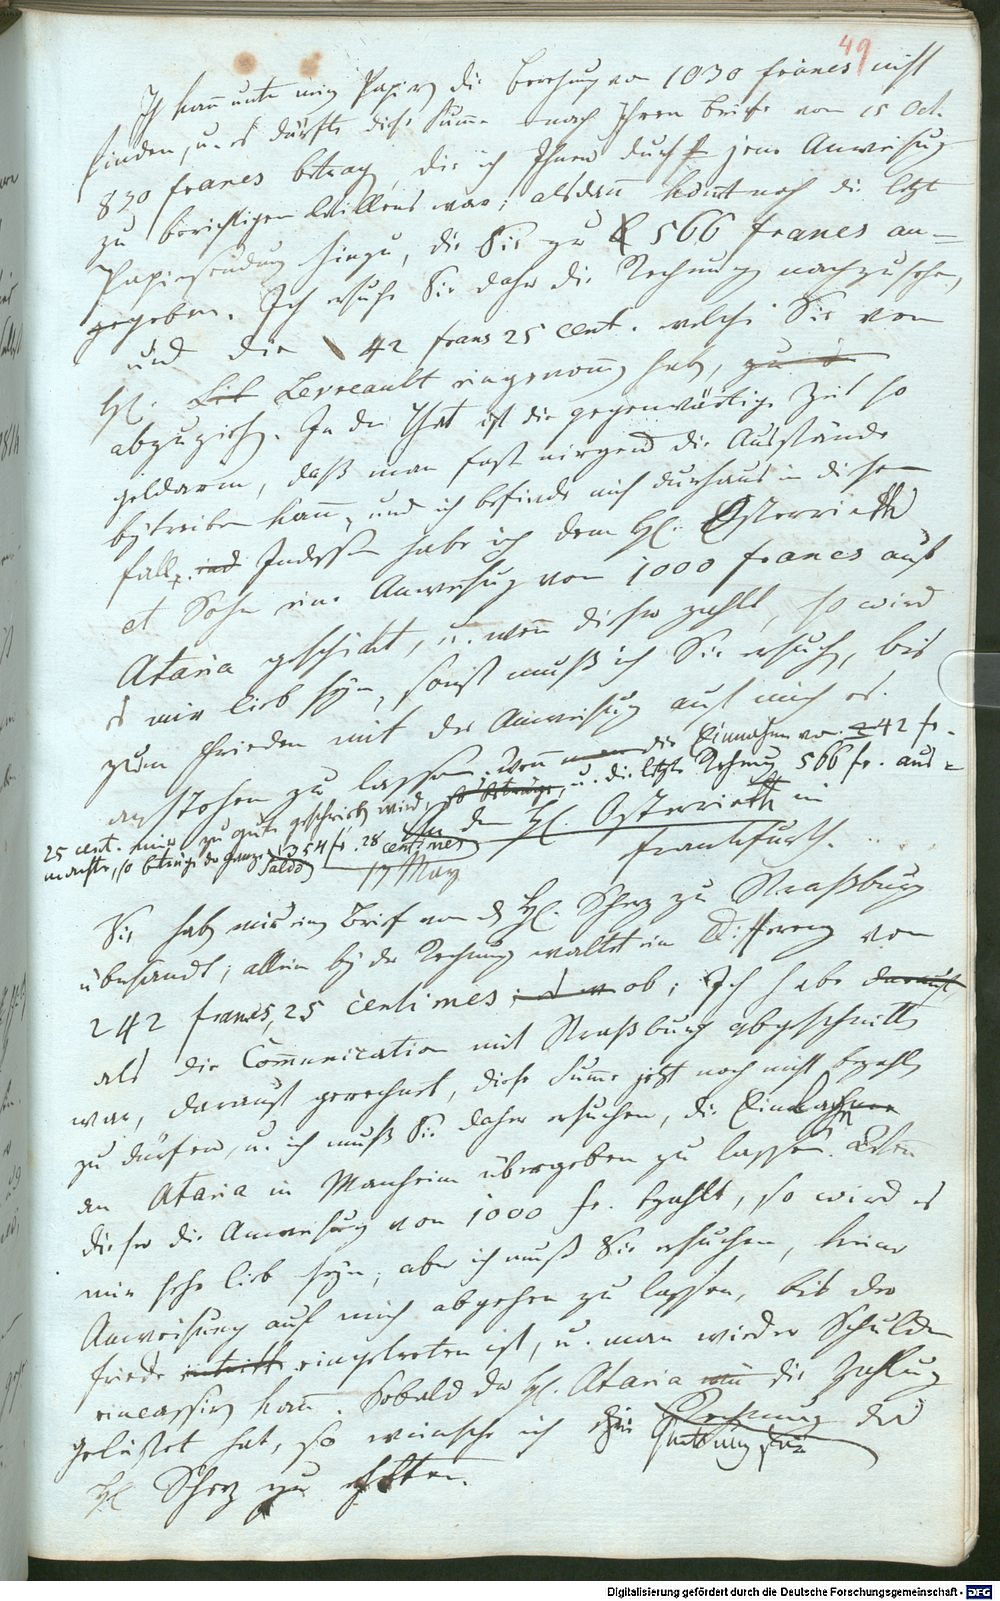 49
Ich kann unter meinen Papieren die Berechnung von 1030 francs nicht
finden, u. es dürfte diese Summe nach Ihrem Briefe vom 15 Oct.
830 francs betragen, die ich Ihnen durch jene Anweisung
zu berichtigen Willens war; alsdann kommt noch die letzte
Papiersendung hinzu, die Sie zu 566 francs an-
gegeben. Ich ersuche Sie daher die Rechnung nachzusehen,
und die 42 francs 25 cent. welche Sie von
H. Levreault eingenommen haben,
abzuziehen. In der That ist die gegenwärtige Zeit so
geldarm, daß man fast nirgend die Ausstände
beytreiben kann, und ich befinde mich durchaus in diesem
Fall. Indessen habe ich dem H. Osterrieth
et Sohn eine Anweisung von 1000 francs auf
Ataria geschickt, u. wenn dieser zahlt, so wird
es mir lieb seyn, sonst muß ich Sie ersuchen, bis
zum Frieden mit der Anweisung auf mich es
anstehen zu lassen. Wenn die Einnahme von 242 fr.
25 cent. mir zu gute geschrieben wird, u. die letzte Rechnung 566 fr. aus-
machte, so betrüge der ganze Saldo 1354 fr. 28 centimes
An den H. Osterrieth in
Frankfurth.
17 May
Sie haben mir einen Brief von H. Scherz zu Straßburg
übersandt; allein bey der Rechnung waltet eine Differenz von
242 francs, 25 centimes ob; Ich habe darauf,
als die Communication mit Straßburg abgeschnitten
war, darauf gerechnet, diese Summe jetzt noch nicht bezahlen
zu dürfen, u. ich muß Sie daher ersuchen, die
an Ataria in Manheim übergeben zu lassen. Wenn
dieser die Anweisung von 1000 fr. bezahlt, so wird es
mir sehr lieb seyn; aber ich muß Sie ersuchen, keine
Anweisung auf mich abgehen zu lassen, bis der
Friede eintritt eingetreten ist, u. man wieder Schulden
eincassiren kann. Sobald der H. Ataria die Zahlung
geleistet hat, so wünsche ich die Rechnung des
Quittung
H. Scherz zu erhalten.
Digitalisierung gefördert durch die Deutsche Forschungsgemeinschaft - DFG